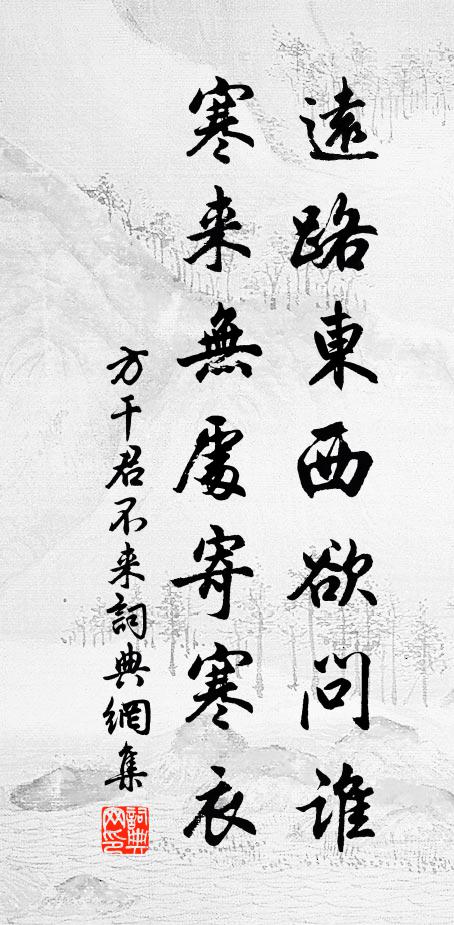 遠路東西欲問誰
寒来無處寄寒衣
方干君不来詞典網集
詞典網印